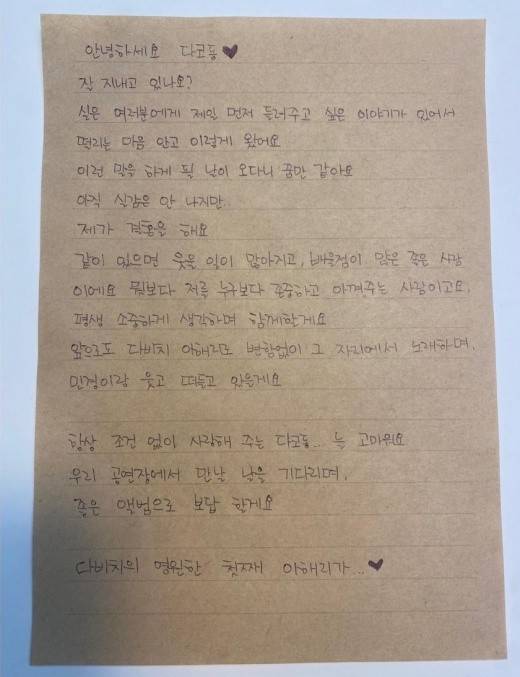 안녕하세요 다코동♥
잘 지내고 있나요?
실은 여러분에게 제일 먼저 들려주고 싶은 이야기가 있어서
떨리는 마음 안고 이렇게 왔어요
이런 말을 하게 될 날이 오다니 꿈만 같아요
아직 실감은 안 나지만..
제가 결혼을 해요
같이 있으면 웃을 일이 많아지고, 배울점이 많은 좋은 사람
이에요 뭐보다 저를 누구보다 존중하고 아껴주는 사람이고요.
평생 소중하게 생각하며 함께할게요
앞으로도 다비치 이해리로 변함없이 그 자리에서 노래하며,
민경이랑 웃고 떠들고 있을게요
항상 조건 없이 사랑해 주는 다코동... 늘 고마워요
우리 공연장에서 만날 날을 기다리며,
좋은 앨범으로 보답 할게요
다비치의 영원한 첫째 이해리가...♥